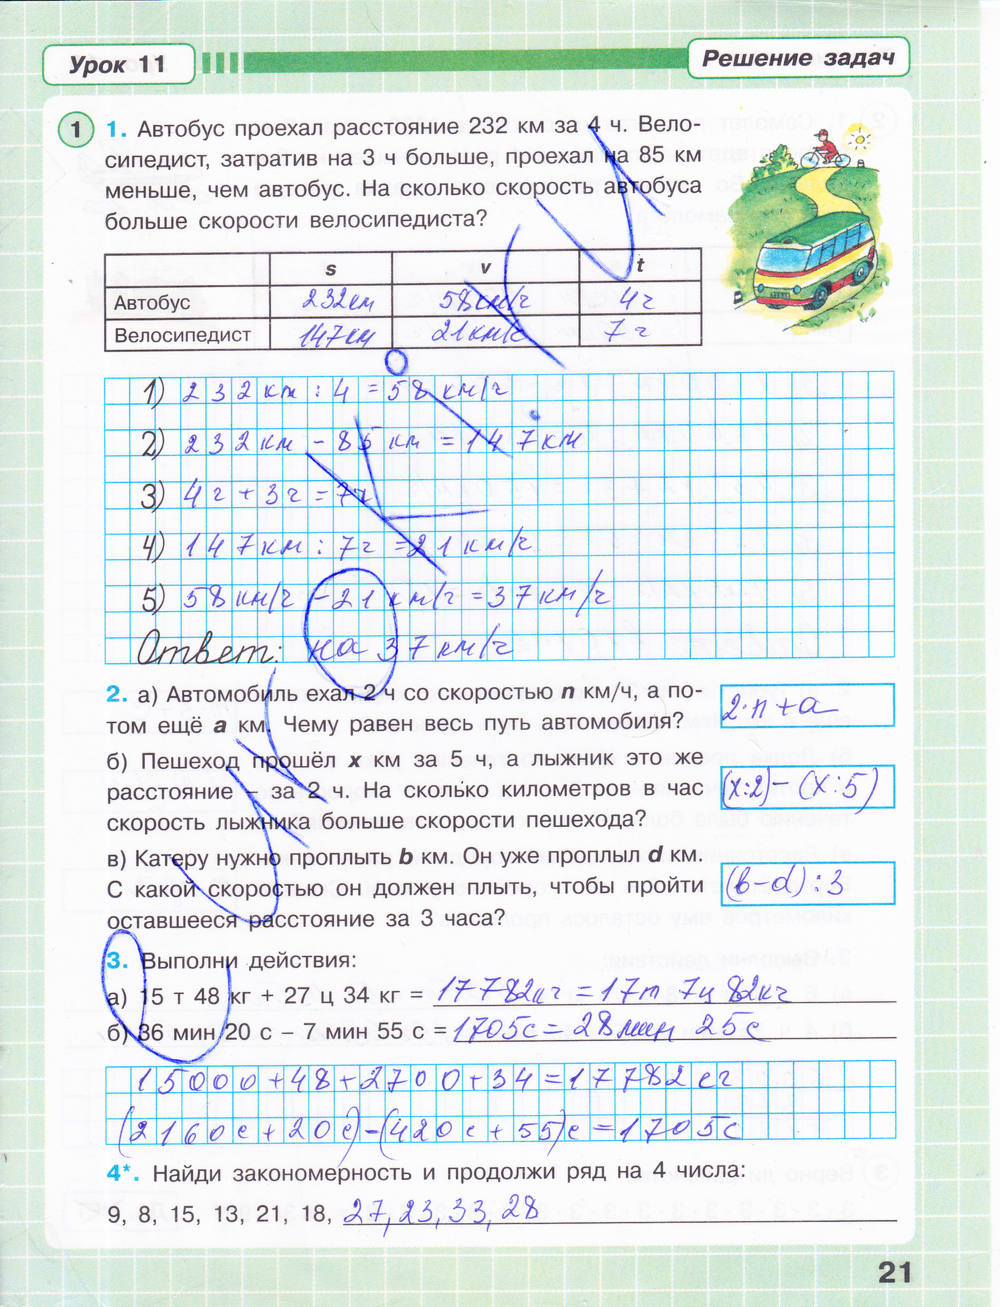 Урок 11
Решение задач
1 1. Автобус проехал расстояние 232 км за 4 ч. Вело-
сипедист, затратив на 3 ч больше, проехал на 85 км
меньше, чем автобус. На сколько скорость автобуса
больше скорости велосипедиста?
s v t
Автобус 232км 58км/ч 4ч
Велосипедист 147км 21км/ч 7ч
1) 232 км : 4 = 58 км/ч
2) 232 км - 85 км = 147 км
3) 4ч + 3ч = 7ч
4) 147 км : 7ч = 21 км/ч
5) 58 км/ч - 21 км/ч = 37 км/ч
Ответ: на 37 км/ч
2. а) Автомобиль ехал 2 ч со скоростью n км/ч, а по-
том ещё a км. Чему равен весь путь автомобиля?
2·n+a
б) Пешеход прошёл x км за 5 ч, а лыжник это же
расстояние – за 2 ч. На сколько километров в час
скорость лыжника больше скорости пешехода?
(x:2)-(x:5)
в) Катеру нужно проплыть b км. Он уже проплыл d км.
С какой скоростью он должен плыть, чтобы пройти
оставшееся расстояние за 3 часа?
(b-d):3
3. Выполни действия:
а) 15 т 48 кг + 27 ц 34 кг = 17782кг = 17т 7ц 82кг
б) 36 мин 20 с – 7 мин 55 с = 1705с = 28мин 25с
15000+48+2700+34=17782 кг
(2160с+20с)-(420с+55)с=1705с
4*. Найди закономерность и продолжи ряд на 4 числа:
9, 8, 15, 13, 21, 18, 27, 23, 33, 28
21